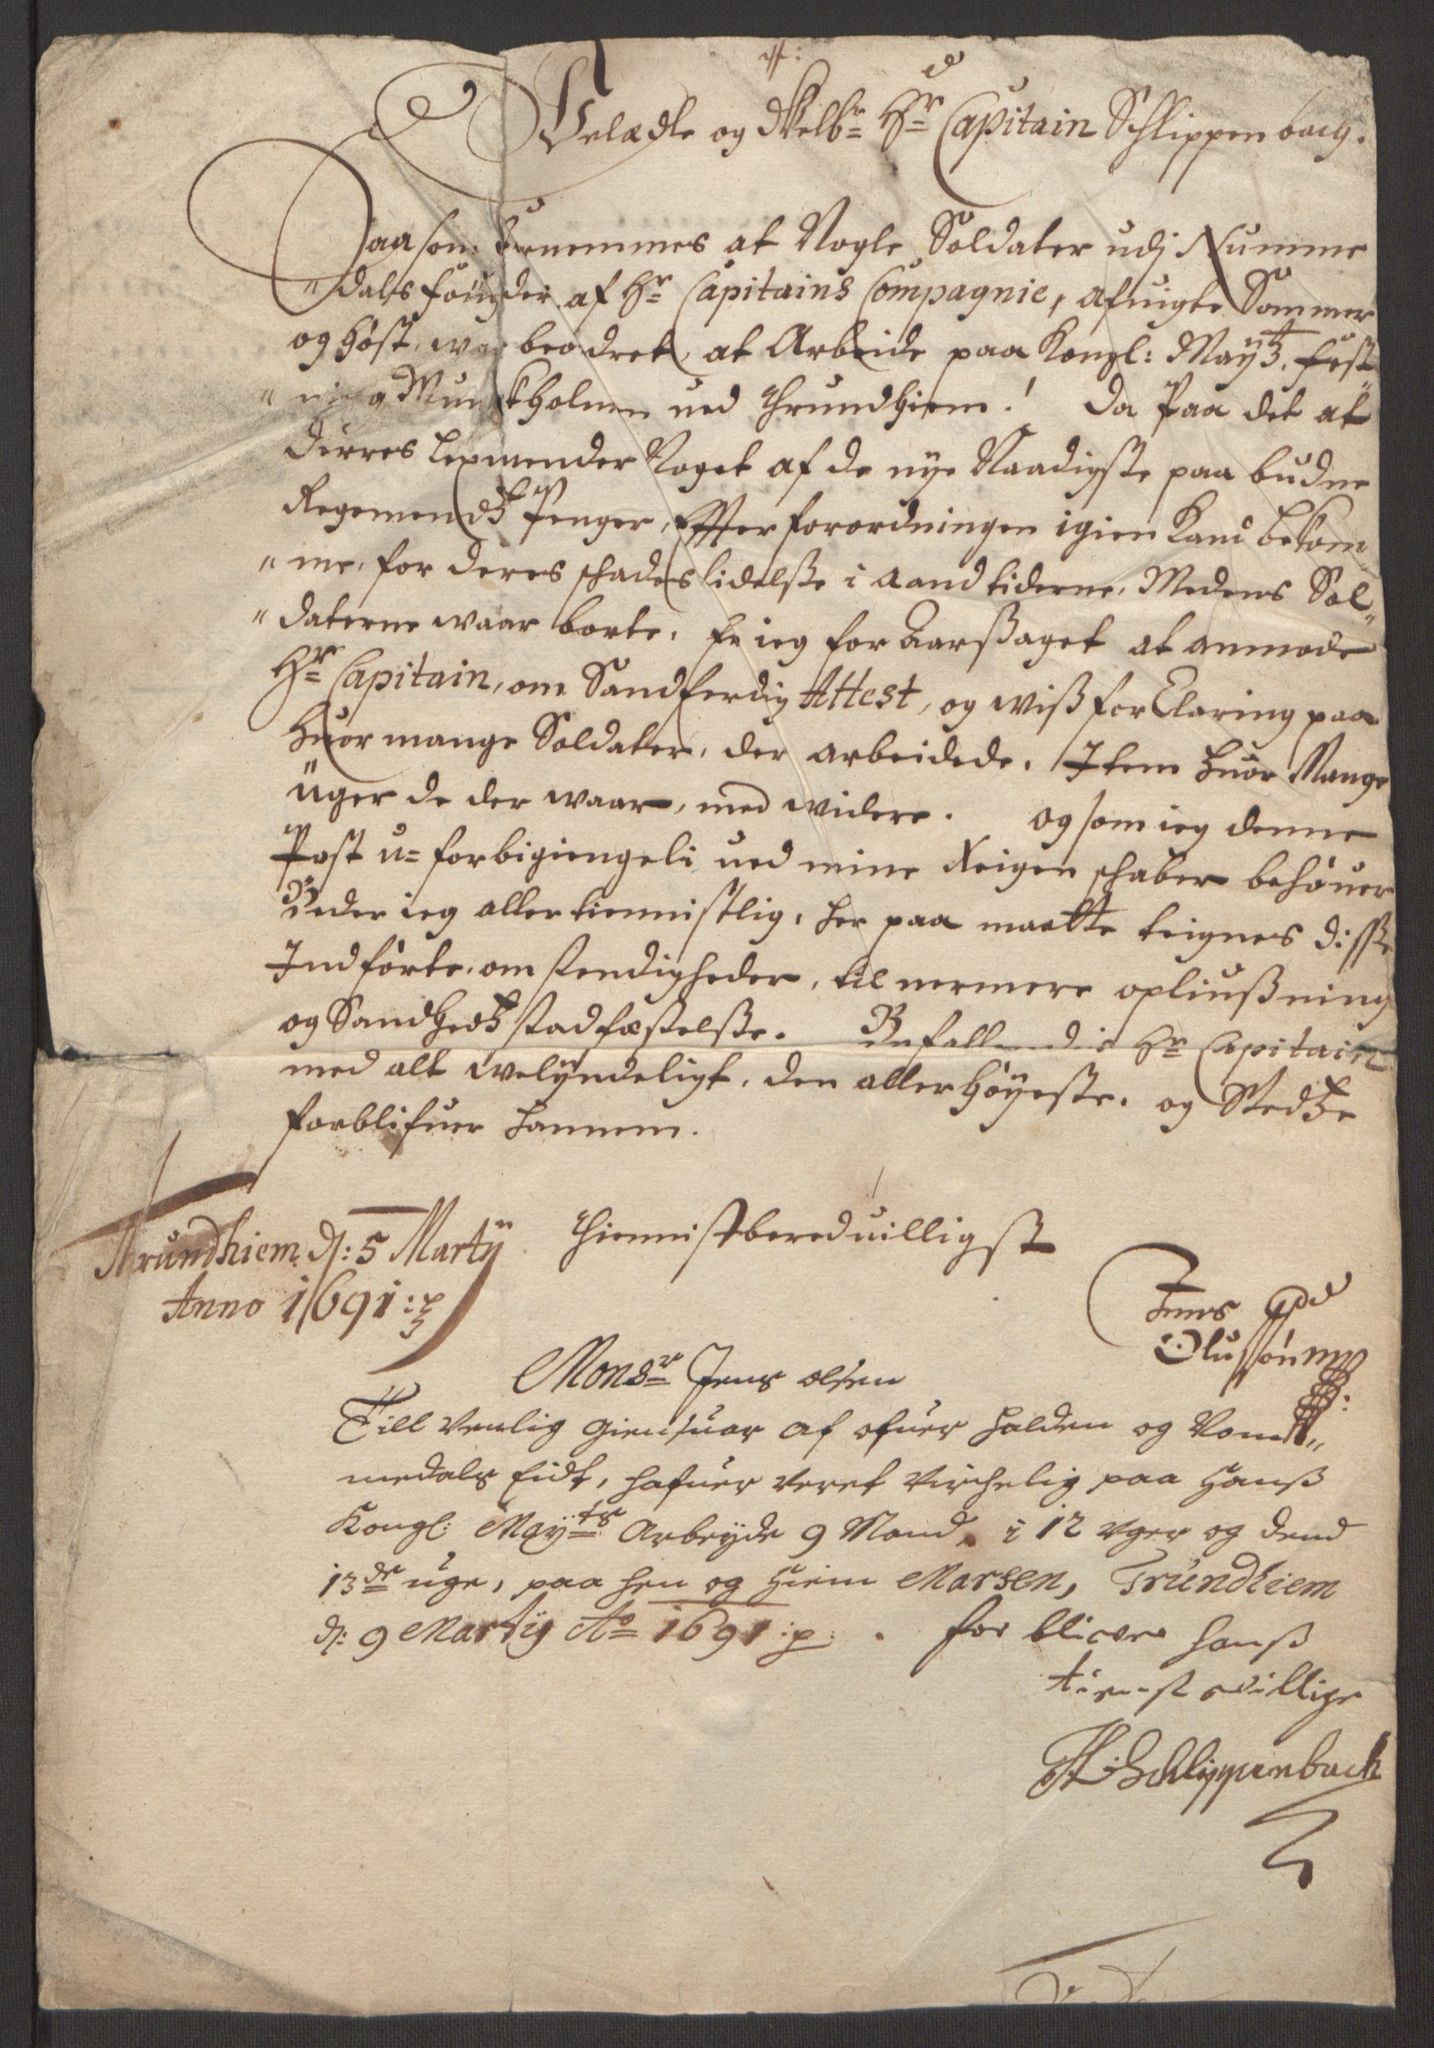 Velædle og Welbr. Hr. Capitain Schlippenbag.
Saasom fornemmes at Nogle Soldater udj Numme
dals fougderi af Hr. Capitains Compagnie, afuigte Sommer
og Høst, war beordret, at Arbeide paa Kongl: Maytz. fæst
ning Munckholmen ued Thrundhiem! Da Paa det at
Dieres Legmender Noget af de nye Naadigste paa budne
Regementz Penger, Efter forordningen igien Kand bekom
me, for deres schades lidelsse i aandtiderne, Medens Sol
daterne waar borte, Er ieg for Aarssaget at anmode
Hr. Capitain, om Sandferdig Attest, og wiss for Claring paa
Huor mange Soldater, der arbeidede. Item huor Mange
Uger de der waar, med widere. og som ieg denne
Post u-forbigiengeli ued mine Reigenschaber behøuer
Beder ieg aller tiennistlig, her paa maatte teignes disse
Indførte omstendigheder, til nermere opliussning
og Sandhedtz stadfæstelsse. Befallendis Hr. Capitain
med alt welyndeligt, den allerHøyeste. og Stedtze
forblifuer hannem.
Thiennistberedvilligst
Thrundhiem d: 5 Martij
Anno 1691:
Jens
Olussøn
Monsr. Jens olsen
Till venlig giensuar af ofuer halden og Nom
medals fidt, hafuer veret virchelig paa Hanss
Kongl: Mayts Arbeyde 9 Mand, i 12 vger og dend
13de uge, paa hen og Hiem Marsen, Trundhiem
d: 9 Martij Ao 1691:
for bliver hanss
tienst villige
Schlippenbach